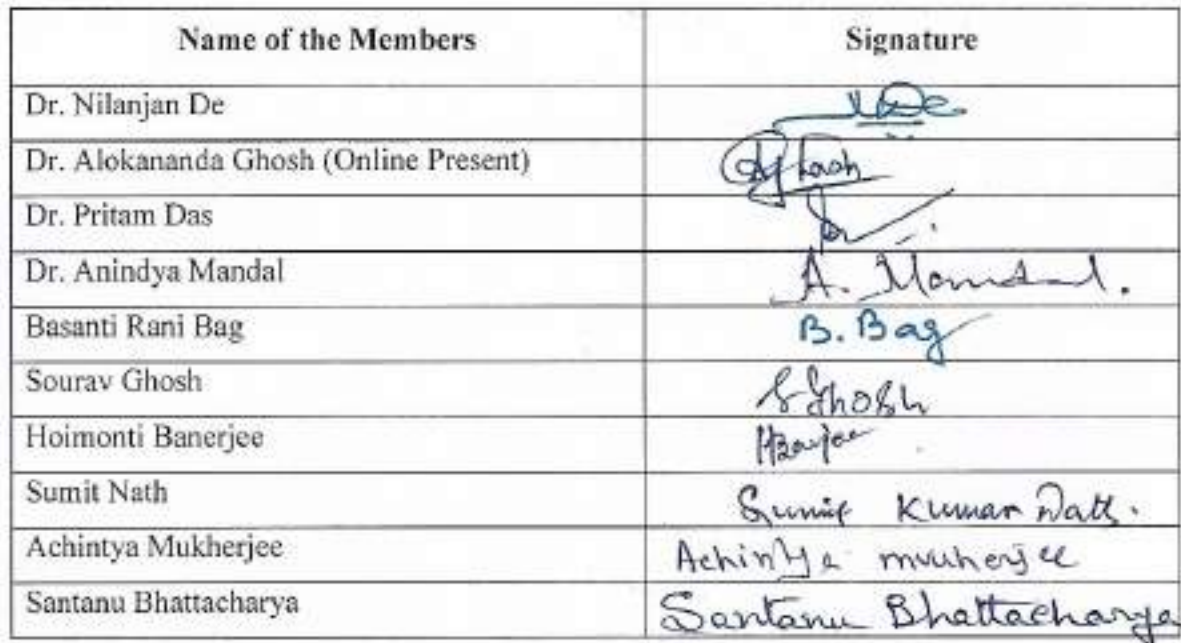 Name of the Members Signature
Dr. Nilanjan De
Dr. Alokananda Ghosh (Online Present) Ghosh
Dr. Pritam Das
Dr. Anindya Mandal A. Mondal.
Basanti Rani Bag B. Bag
Sourav Ghosh S Ghosh
Hoimonti Banerjee HBanerjee
Sumit Nath Sumit Kumar Nath.
Achintya Mukherjee Achintya Mukherjee
Santanu Bhattacharya Santanu Bhattacharya